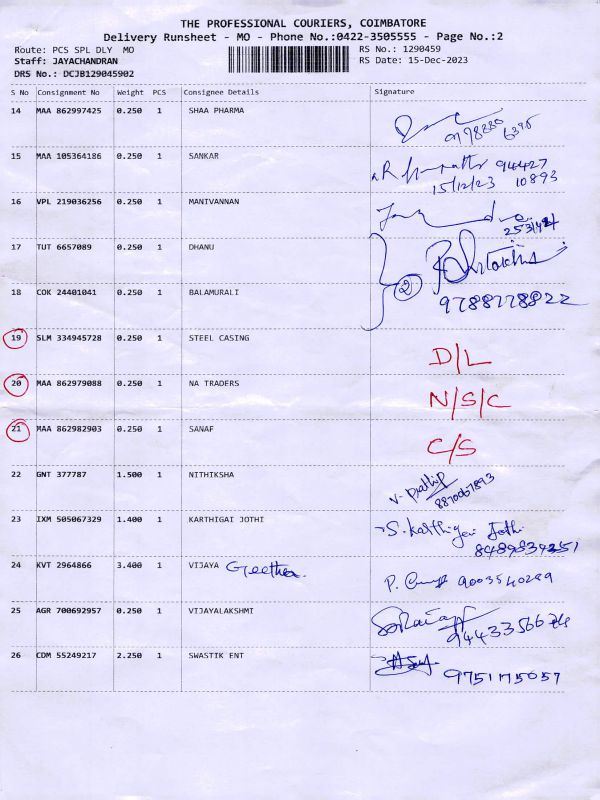 THE PROFESSIONAL COURIERS, COIMBATORE
Delivery Runsheet - MO - Phone No.:0422-3505555 - Page No.:2
Route: PCS SPL DLY MO
RS No.: 1290459
Staff: JAYACHANDRAN
RS Date: 15-Dec-2023
DRS No.: DCJB129045902
S No Consignment No Weight PCS Consignee Details Signature
14 MAA 862997425 0.250 1 SHAA PHARMA
15 MAA 105364186 0.250 1 SANKAR 94427
15/12/23 10893
16 VPL 219036256 0.250 1 MANIVANNAN
17 TUT 6657089 0.250 1 DHANU
18 COK 24401041 0.250 1 BALAMURALI 2
9788778822
19 SLM 334945728 0.250 1 STEEL CASING D/L
20 MAA 862979088 0.250 1 NA TRADERS N/S/C
21 MAA 862982903 0.250 1 SANAF C/S
22 GNT 377787 1.500 1 NITHIKSHA V. Prathip
8870067893
23 IXM 505067329 1.400 1 KARTHIGAI JOTHI S. Karthigai Jothi
8489834251
24 KVT 2964866 3.400 1 VIJAYA Geetha. 9003540289
25 AGR 700692957 0.250 1 VIJAYALAKSHMI
26 CDM 55249217 2.250 1 SWASTIK ENT 9751175057